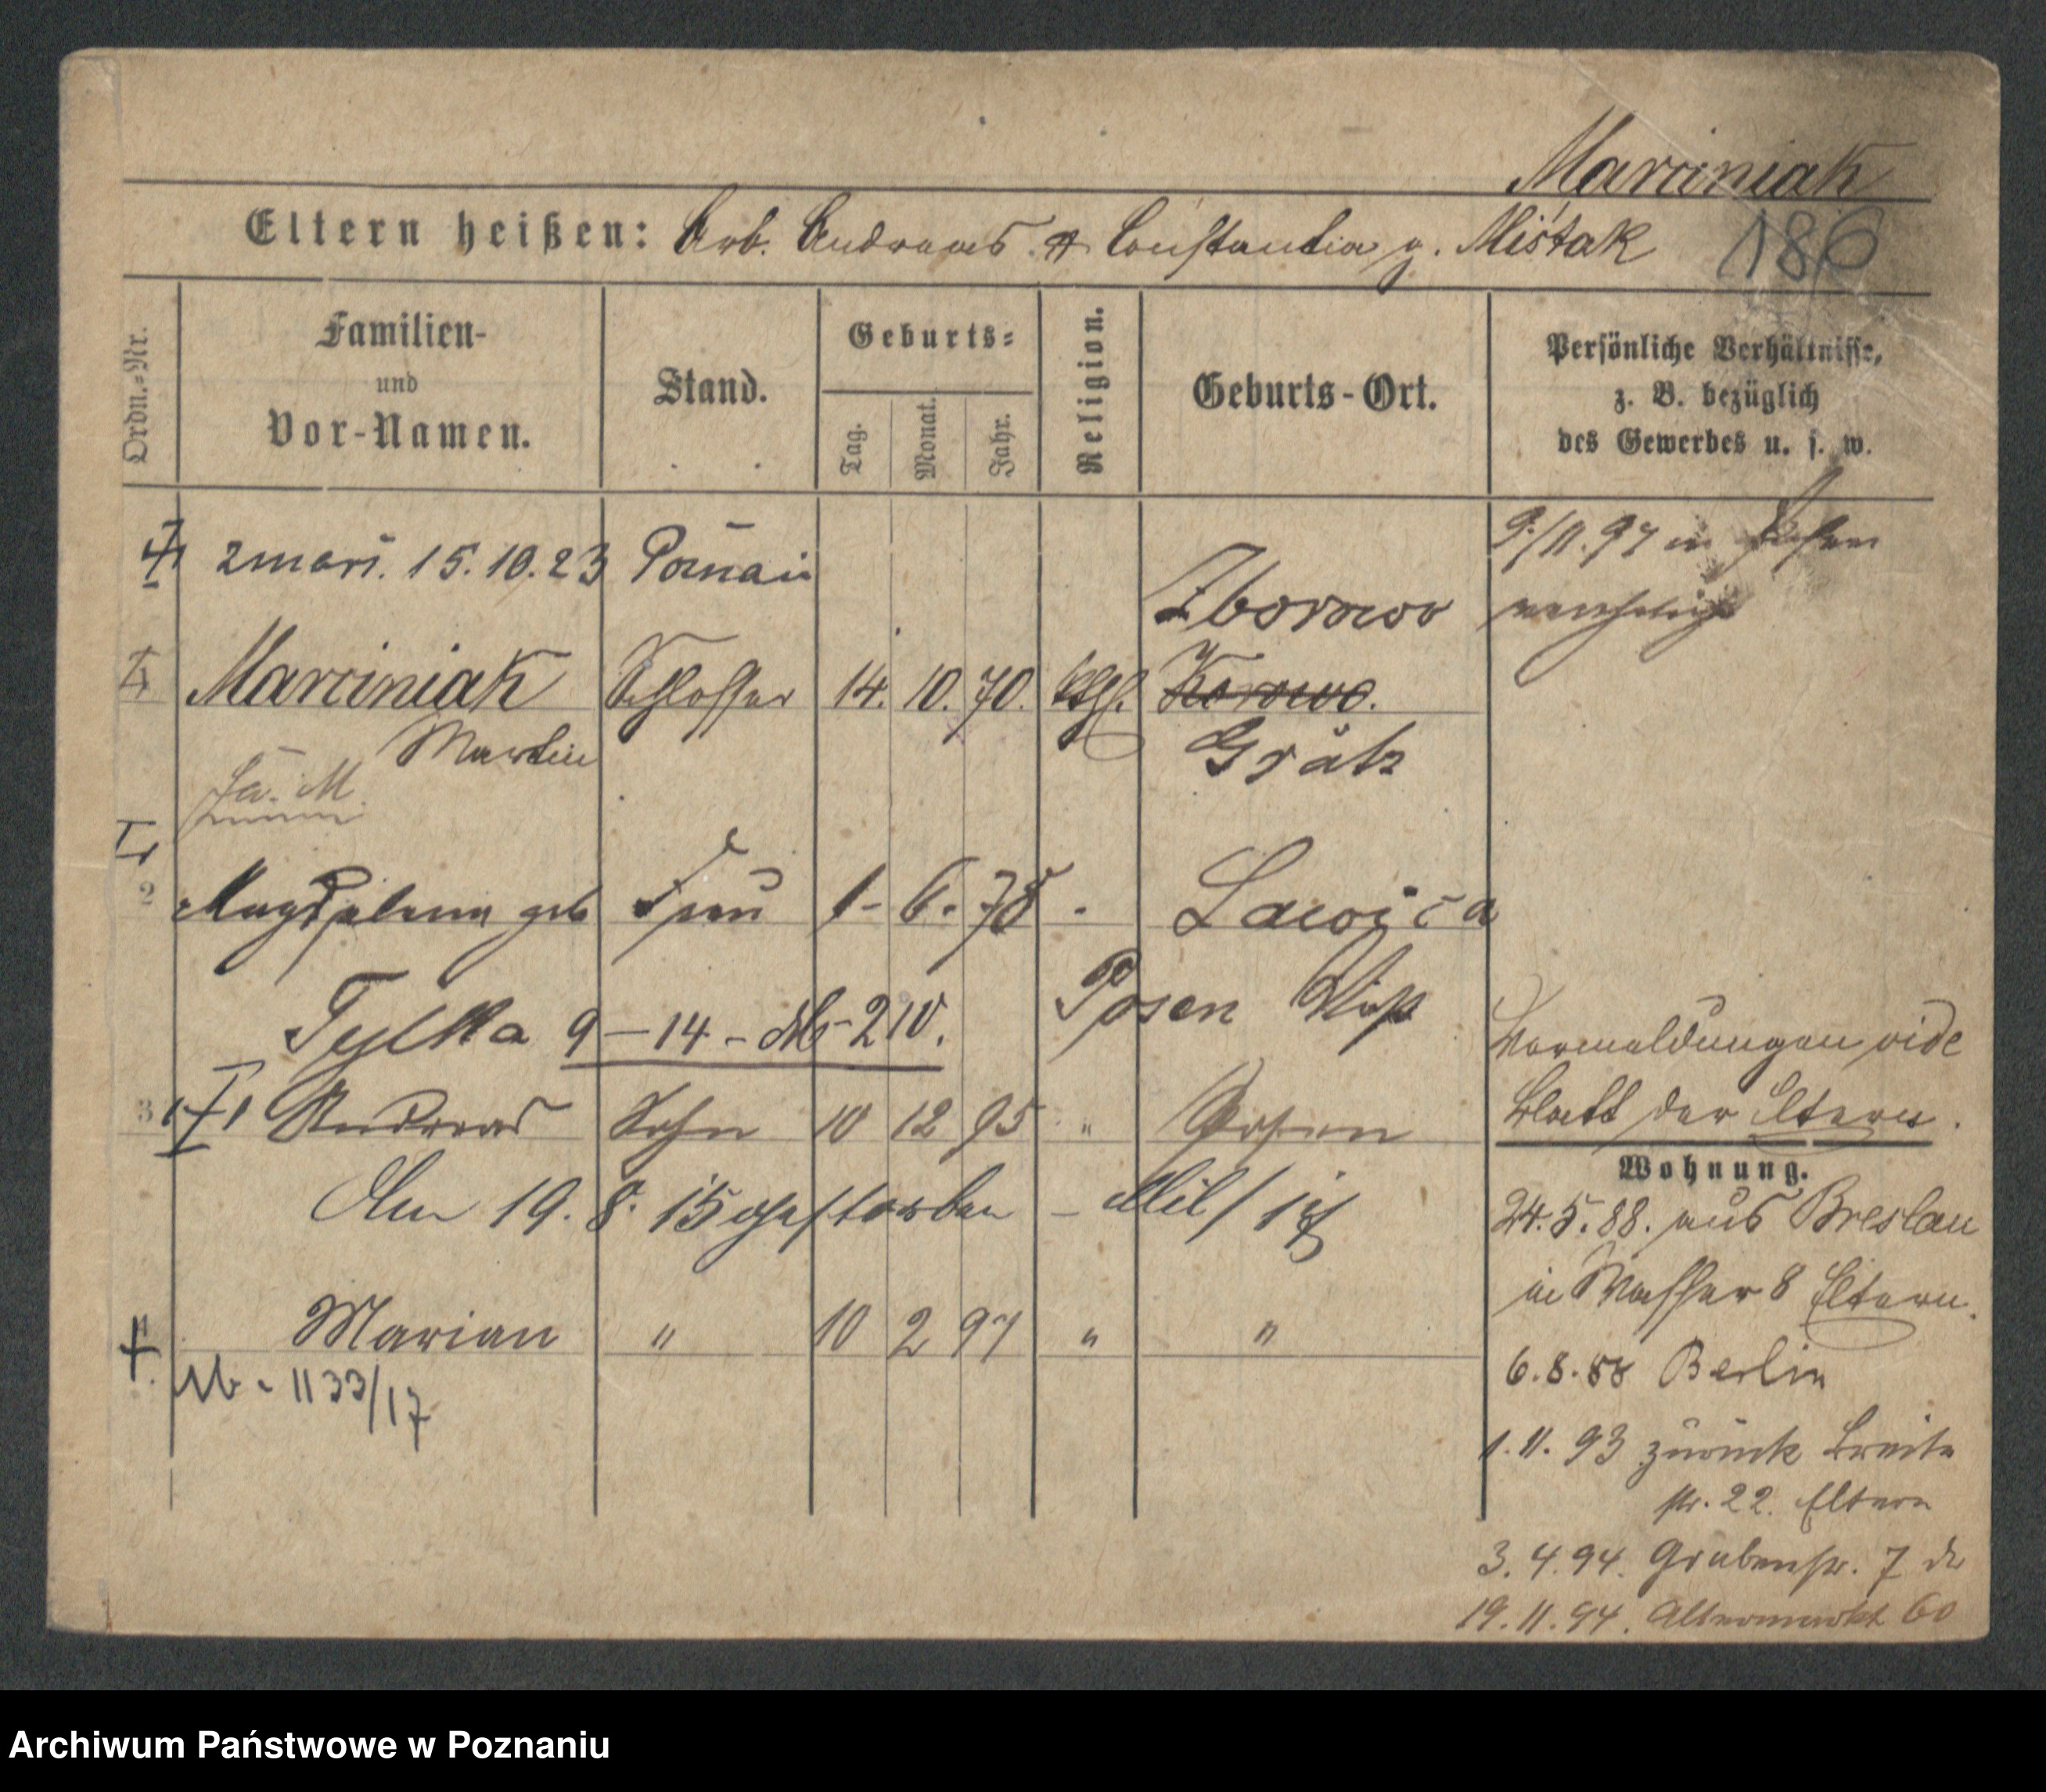 Marciniak
Eltern heißen: Arb. Andreas & Constantia g. Miśtak 186
Ordn.-Nr.
Familien-
und
Vor-Namen.
Stand.
Geburts-
Tag.
Monat.
Jahr.
Religion.
Geburts-Ort.
Persönliche Verhältnisse,
z. B. bezüglich
des Gewerbes u. s. w.
zmarł. 15.10.23 Poznań
9./11.97 in Posen
Zborowo
Marciniak Schlosser 14. 10. 70. kthl. Korowo.
Martin Grätz
Fa. M.
2 Magdalena geb Frau 1- 6. 75 Lawica
Tylka 9-14-Mb-210. Posen West
Vormeldungen vide
3 Andreas Sohn 10 12 95 " Posen
Blatt der Eltern.
Wohnung.
Am 19. 8. 15 gestorben - Mil/
24.5.88. aus Breslau
in Wasser 8 Eltern.
Marian " 10 2 97 " "
6.8.88 Berlin
Mb. 1133/17
1.11.93 zurück Breite
str. 22. Eltern
3.4.94. Grabenstr. 7
19.11.94. Altermarkt 60
Archiwum Państwowe w Poznaniu